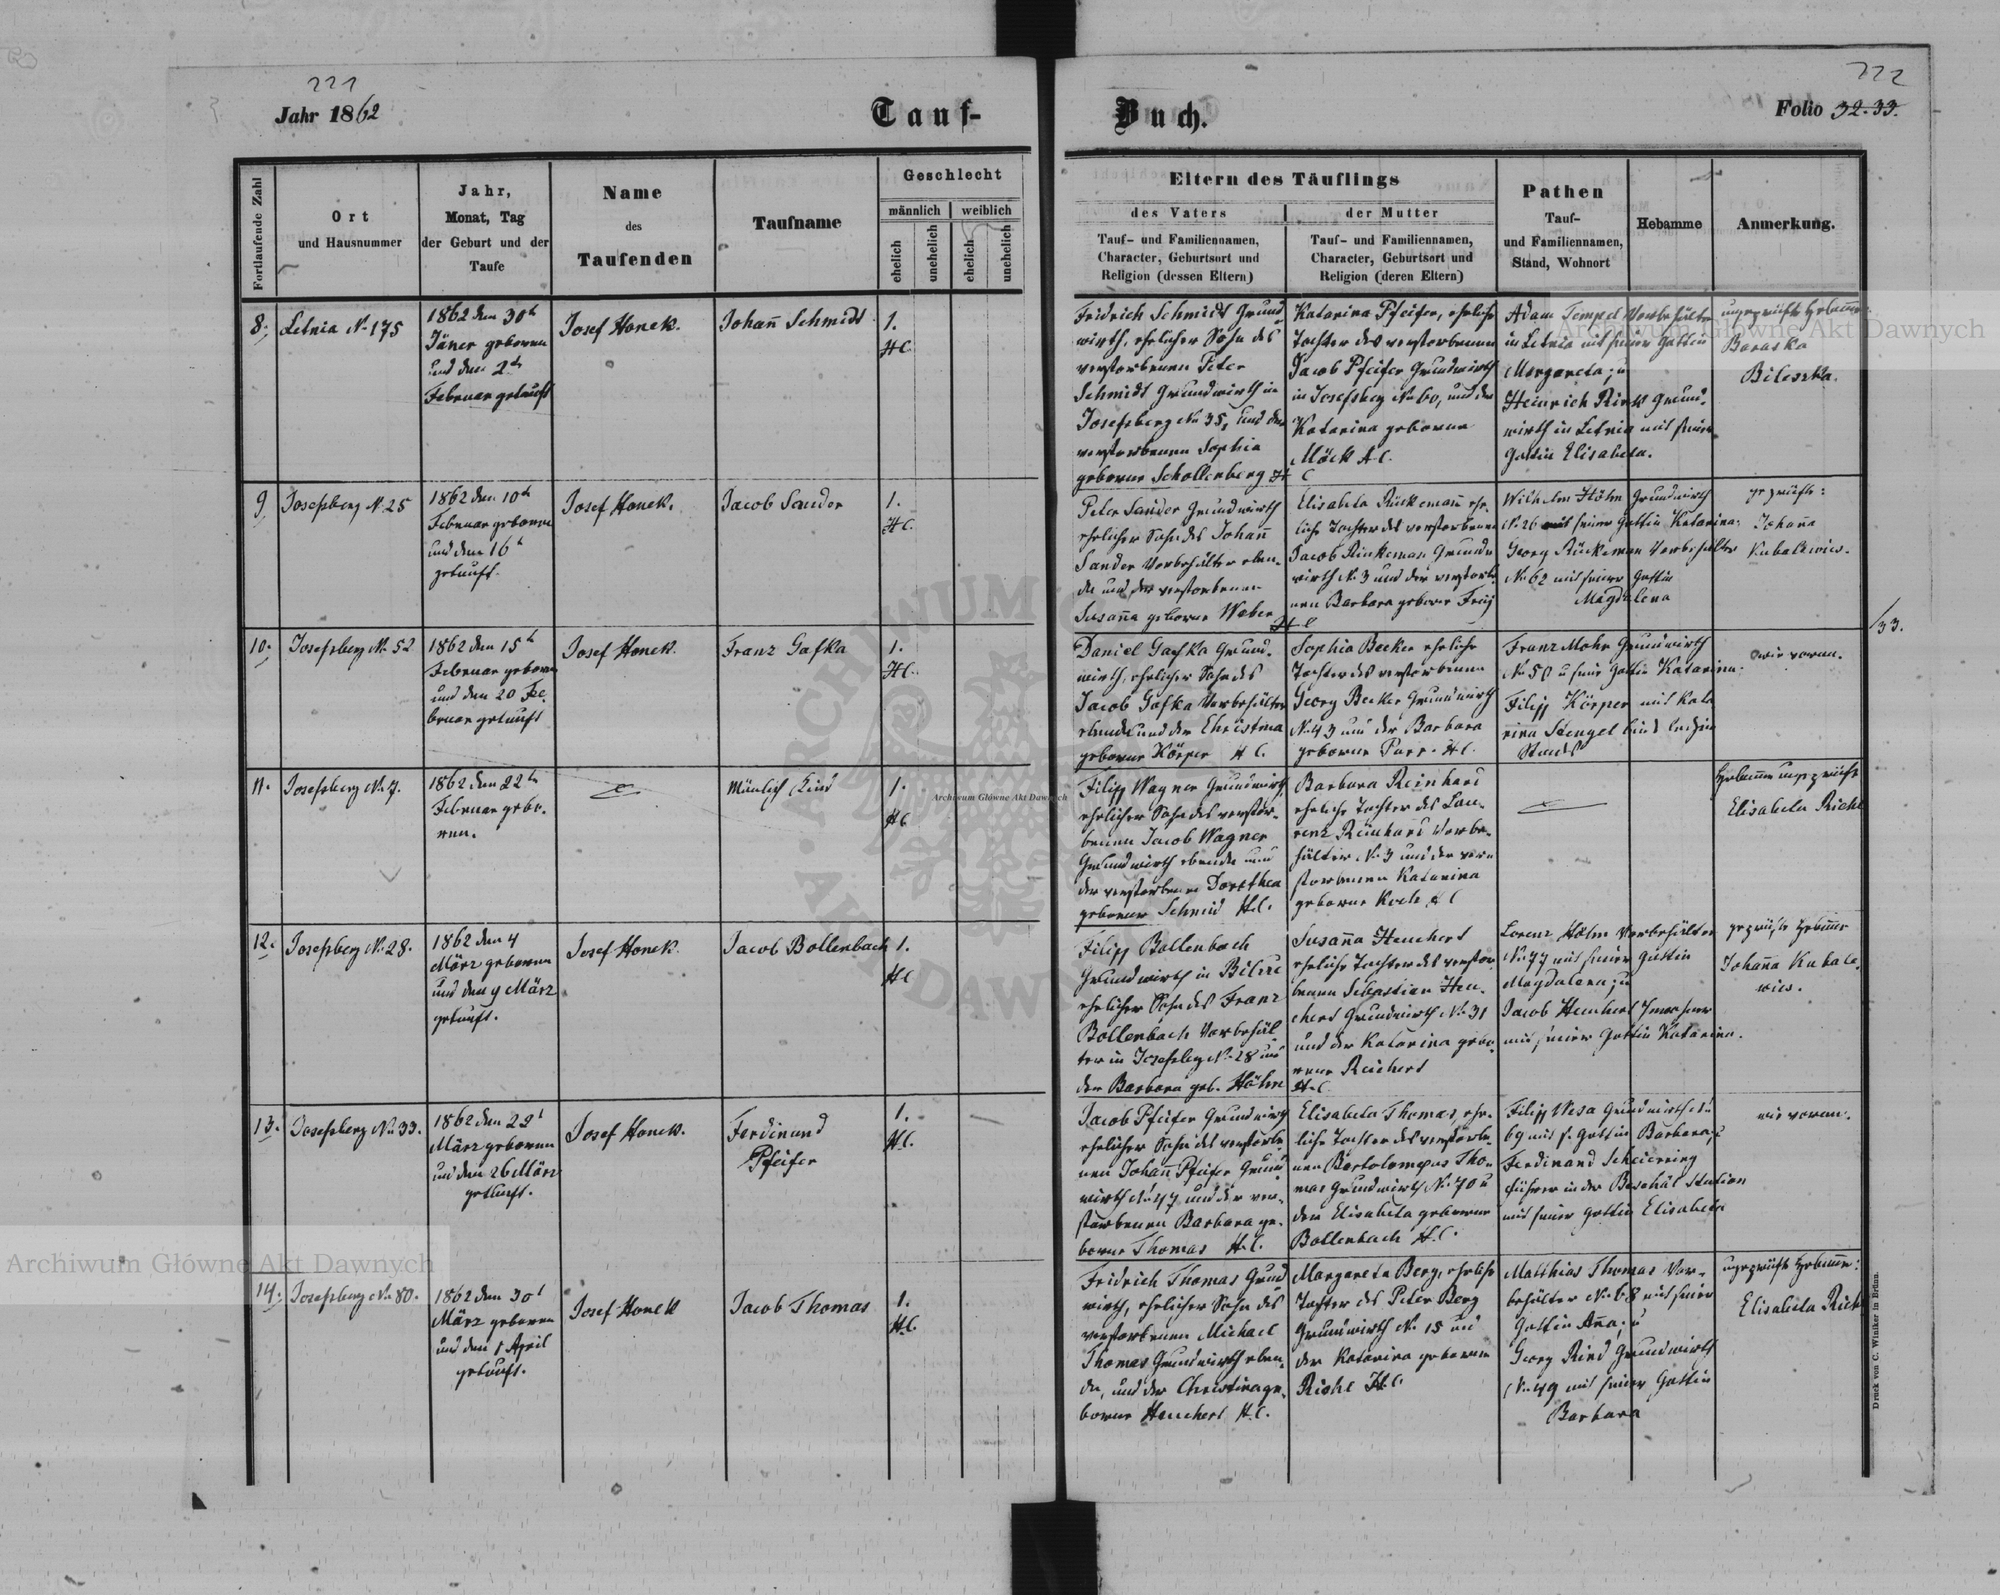 221
Jahr 1862
Tauf-
Buch.
222
Folio 32-33.
Fortlaufende Zahl
Ort
und Hausnummer
Jahr,
Monat, Tag
der Geburt und der
Taufe
Name
des
Taufenden
Taufname
Geschlecht
männlich
weiblich
ehelich
unehelich
ehelich
unehelich
Eltern des Täuflings
des Vaters
der Mutter
Tauf- und Familiennamen,
Character, Geburtsort und
Religion (dessen Eltern)
Tauf- und Familiennamen,
Character, Geburtsort und
Religion (deren Eltern)
Pathen
Tauf-
und Familiennamen,
Stand, Wohnort
Hebamme
Anmerkung.
8.
Letnia No 175
1862 den 30t
Jäner geboren
und den 2t
Februar getauft
Josef Honek.
Johañ Schmidt
1.
H.C.
Fridrich Schmidt Grund-
wirth, ehelicher Sohn des
verstorbenen Peter
Schmidt Grundwirth in
Josefsberg No 35, und der
verstorbenen Sophia
geborne Schollenberg H.C
Katarina Pfeifer, eheliche
Tochter des verstorbenen
Jacob Pfeifer Grundwirth
in Josefsberg No 60, und der
Katarina geborne
Möck H.C.
Adam Tempel Vorbehälter
in Letnia mit seiner Gattin
Margareta; u
Heinrich Grund-
wirth in Letnia mit seiner
Gattin Elisabeta.
ungeprüfte Hebamme
Baraska
Bileszka.
9
Josefsberg N. 25
1862 den 10t
Februar geboren
und den 16t
getauft.
Josef Honek.
Jacob Sander
1.
H.C.
Peter Sander Grundwirth
ehelicher Sohn des Johañ
Sander Vorbehälter eben-
da und der verstorbenen
Susaña geborne Weber
H.C
Elisabeta Rückemañ ehe-
liche Tochter des verstorbenen
Jacob Rückeman Grund-
wirth N. 3 und der verstorbe-
nen Barbara geborne Freÿ
Wilhelm Höhn Grundwirth
N. 26 mit seiner Gattin Katarina;
Georg Rückeman Vorbehälter
No 62 mit seiner Gattin
Magdalena
geprüfte:
Johaña
Kubalewics.
10.
Josefsberg No 52
1862 den 15t
Februar geboren
und den 20 Fe-
bruar getauft
Josef Honek.
Franz Gafka
1.
H.C.
Daniel Gafka Grund-
wirth, ehelicher Sohn des
Jacob Gafka Vorbehälter
ebenda und der Christina
geborne Körper H.C.
Sophia Becker eheliche
Tochter des verstorbenen
Georg Becker Grundwirth
N. 43 und der Barbara
geborne Parr. H.C.
Franz Mohr Grundwirth
No 50 u seine Gattin Katarina.
Filipp Körper mit Kata
rina Stengel beide ledigen
Standes
wie voran.
11.
Josefsberg No 7.
1862 den 22t
Februar gebo-
ren.
Mänlich Kind
1.
H.C
Filipp Wagner Grundwirth,
ehelicher Sohn des verstor-
benen Jacob Wagner
Grundwirth ebenda und
der verstorbenen Dorothea
geborner Schmid H.C.
Barbara Reinhard
eheliche Tochter des Lau-
renz Reinhard Vorbe-
hälter N. 3 und der ver-
storbenen Katarina
geborne Koch H.C
Hebamme ungeprüfte
Elisabeta Riche
12.
Josefsberg No 28.
1862 den 4
März geboren
und den 9 März
getauft.
Josef Honek.
Jacob Bollenbach
1.
H.C
Filipp Bollenbach
Grundwirth in
ehelicher Sohn des Franz
Bollenbach Vorbehäl
ter in Josefsberg No 28 und
der Barbara geb. Höhn
Susaña Heuchert
eheliche Tochter des verstor-
benen Sebastian Heu-
chert Grundwirth No 31
und der Katarina gebo-
rene Reichert
H.C.
Lorenz Höhn Vorbehälter
No 77 mit seiner Gattin
Magdalena; u
Jacob Heuchert Inwohner
mit seiner Gattin Katarina.
geprüfte Hebamme
Johaña Kubale-
wics.
13.
Josefsberg No 33.
1862 den 22t
März geboren
und den 26 März
getauft.
Josef Honek.
Ferdinand
Pfeifer
1.
H.C.
Jacob Pfeifer Grundwirth
ehelicher Sohn des verstorbe-
nen Johañ Pfeifer Grund-
wirth No 47 und der ver-
storbenen Barbara ge-
borne Thomas H.C.
Elisabeta Thomas, ehe-
liche Tochter des verstorbe-
nen Bartolomeus Tho-
mas Grundwirth No 70 u
der Elisabeta geborne
Bollenbach H.C.
Filipp Wesa Grundwirth No
69 mit s. Gattin Barbara; u
Ferdinand Scheiering
führer in der Beschäl Station
mit seiner Gattin Elisabeta
wie voran.
14.
Josefsberg No 80.
1862 den 30t
März geboren
und den 1 April
getauft.
Josef Honek
Jacob Thomas
1.
H.C.
Fridrich Thomas Grund
wirth, ehelicher Sohn des
verstorbenen Michael
Thomas Grundwirth eben-
da, und der Christina ge-
borne Heuchert H.C.
Margareta Berg, eheliche
Tochter des Peter Berg
Grundwirth No 15 und
der Katarina geborene
Riche H.C.
Matthias Thomas Vor-
behälter No 68 mit seiner
Gattin Aña; u
Georg Ried Grundwirth
No 49 mit seiner Gattin
Barbara
ungeprüfte Hebamme:
Elisabeta Riche
/33.
Druck von C. Winiker in Brünn.
Archiwum Główne Akt Dawnych
Archiwum Główne Akt Dawnych
Archiwum Główne Akt Dawnych